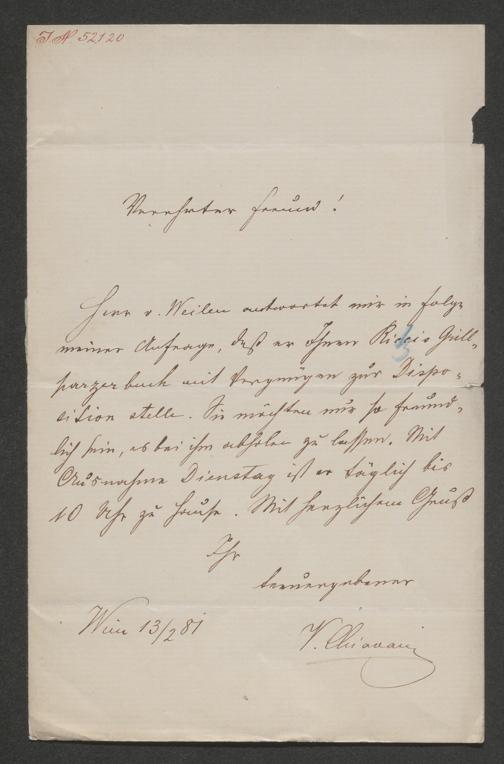 J. N 52120
Verehrter Freund!
Herr v. Weilen antwortet mir in Folge
meiner Anfrage, daß er Ihnen Riccis Grill-
parzerbuch mit Vergnügen zur Dispo-
sition stelle. Sie möchten nur so freund-
lich sein, es bei ihm abholen zu lassen. Mit
Ausnahme Dienstag ist er täglich bis
10 Uhr zu Hause. Mit herzlichem Gruß
Ihr
treuergebener
Wien 13/2 81
V. Chiavacci